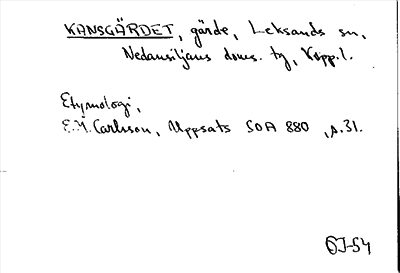 KANSGÄRDET, gärde, Leksands sn,
Nedansiljans doms. tg, Kopp.l.
Etymologi,
E.M. Carlsson, Uppsats SOA 880, s.31.
ÖJ-54